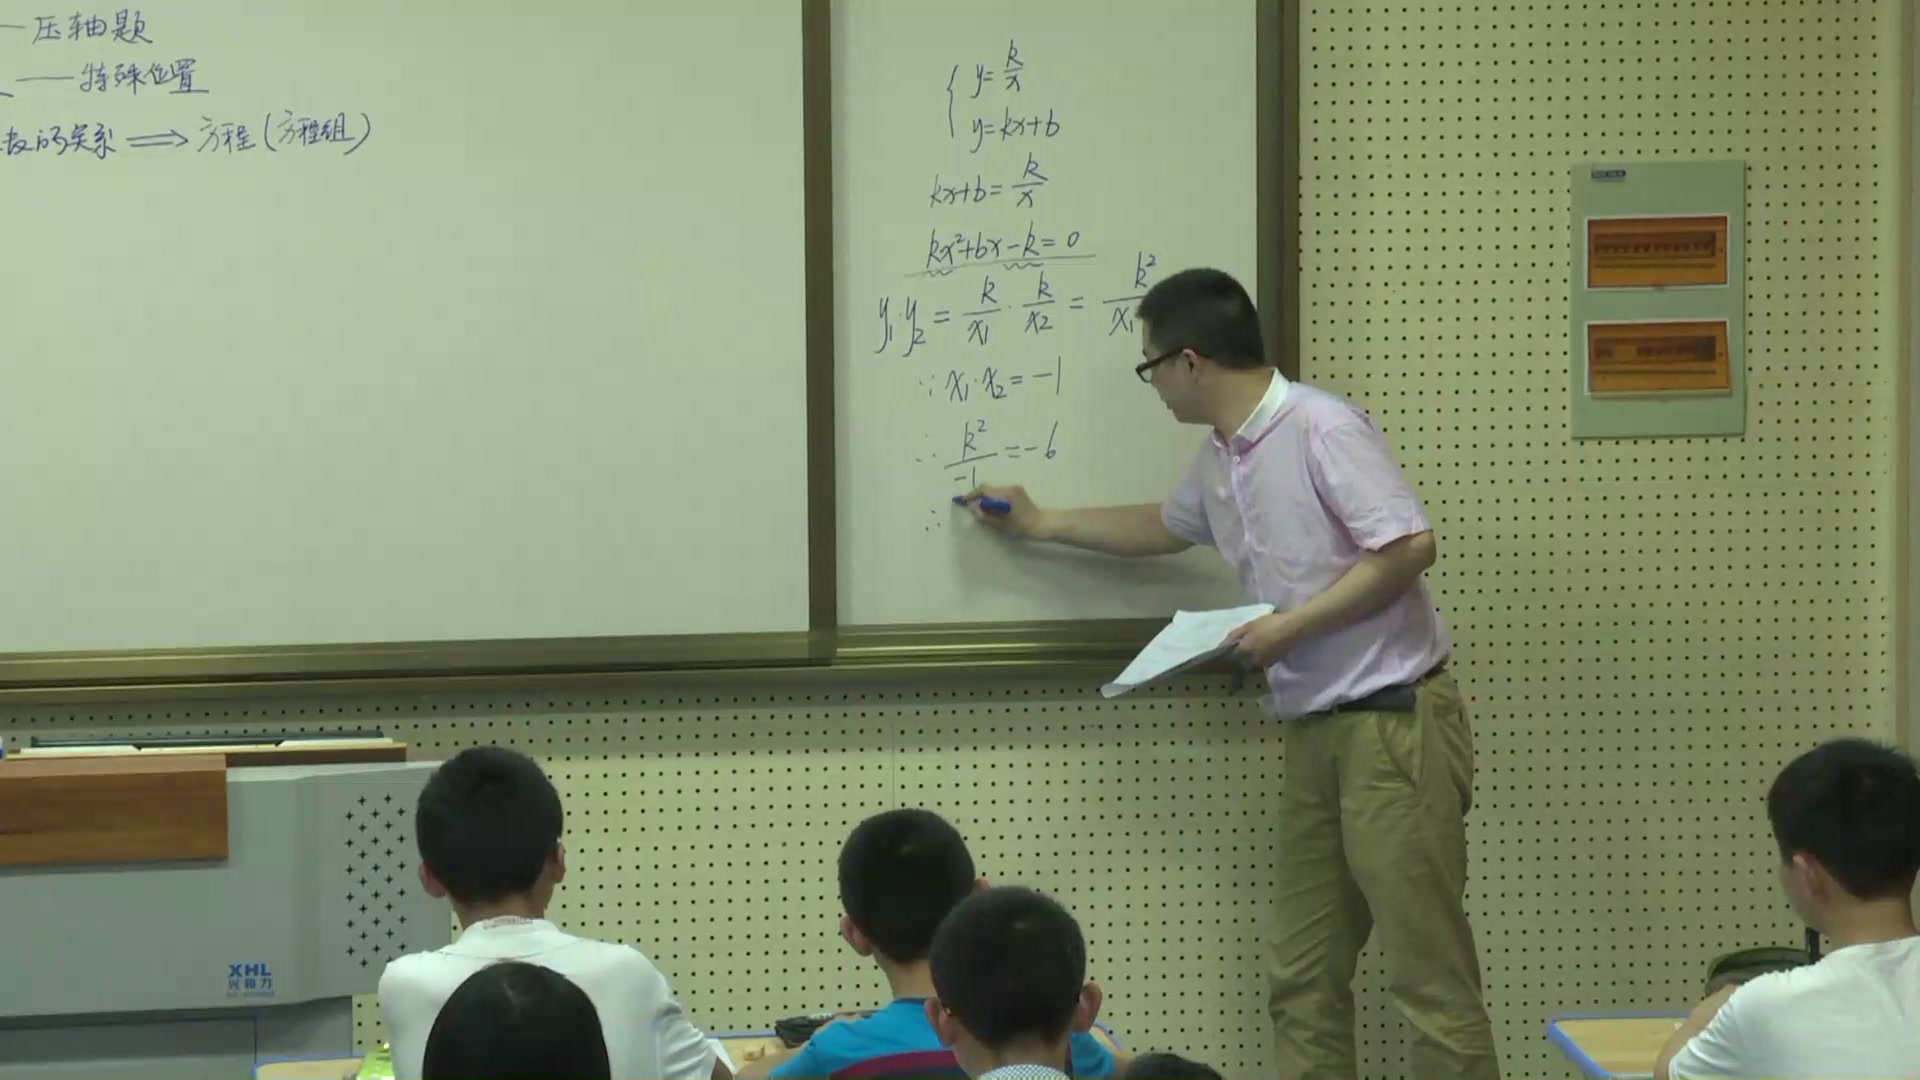 —压轴题
—特殊位置
的关系 ⟹ 方程(方程组)
{ y=k/x
y=kx+b
kx+b=k/x
kx²+bx-k=0
y₁·y₂=k/x₁·k/x₂=k²/x₁
∵x₁·x₂=-1
∴k²/-1=-6
∴
XHL